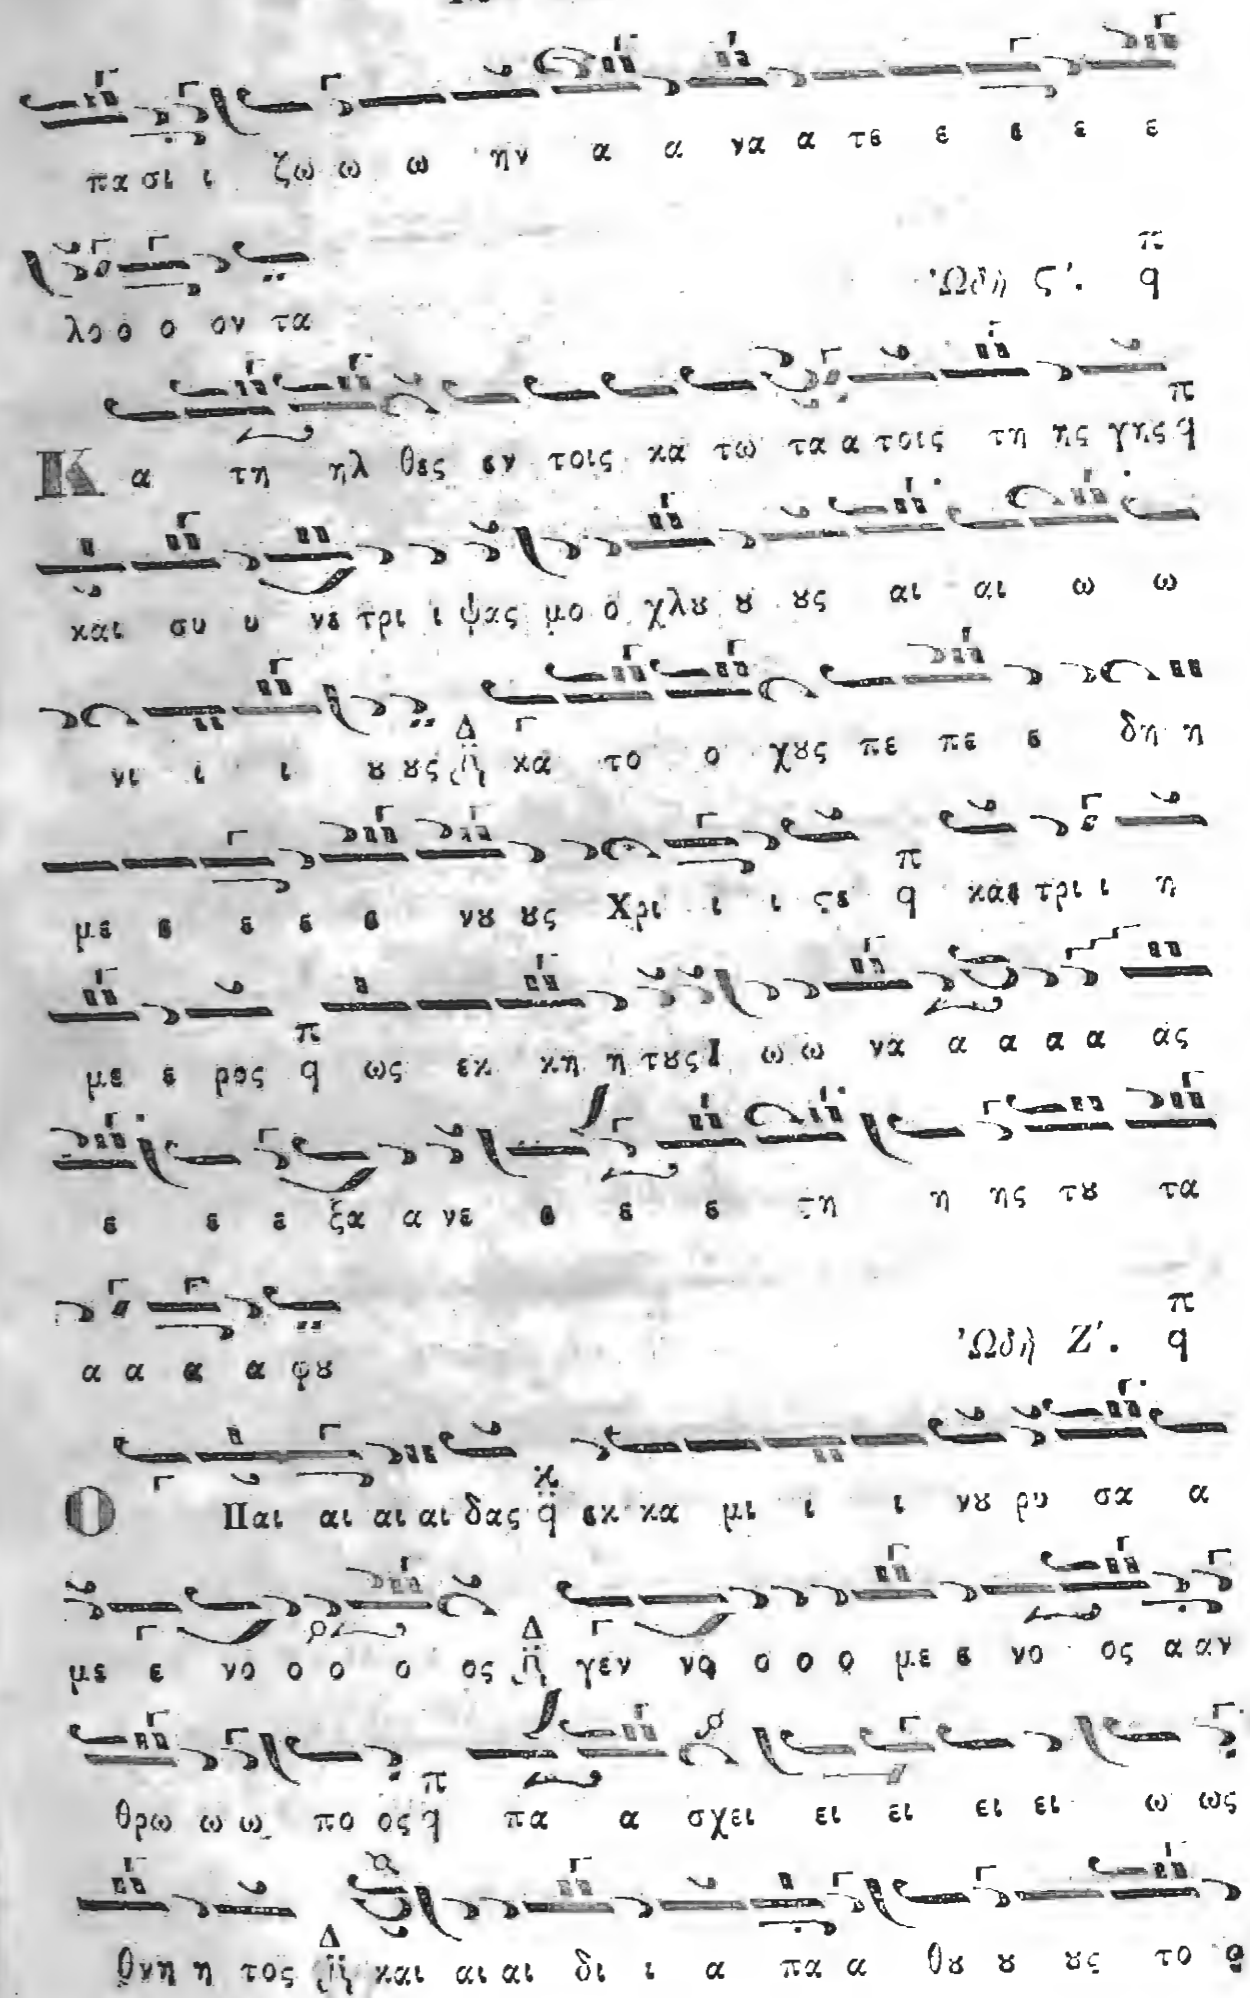 πα σι ι ζω ω ω ην α α να α τε ε ε ε ε
λο ο ο ον τα
Ὠδὴ ς′. π q
Κ α τη ηλ θες εν τοις κα τω τα α τοις τη ης γης π q
και συ υ νε τρι ι ψας μο ο χλȣ ȣ ȣς αι αι ω ω
νι ι ι ȣ ȣς Δ κα το ο χȣς πε πε ε δη η
με ε ε ε ε νȣ ȣς Χρι ι ι ϛε π q και τρι ι η
με ε ρος π q ως εκ κη η τȣς Ι ω ω να α α α α ας
ε ε ε ξα α νε ε ε ε τη η ης τȣ τα
α α α α φȣ
Ὠδὴ Ζ′. π q
Ο Παι αι αι αι δας κ q εκ κα μι ι ι νȣ ρυ σα α
με ε νο ο ο ο ος Δ γεν νο ο ο ο με ε νο ος α αν
θρω ω ω πο ος π q πα α σχει ει ει ει ει ω ως
θνη η τος Δ και αι αι δι ι α πα α θȣ ȣ ȣς το ο